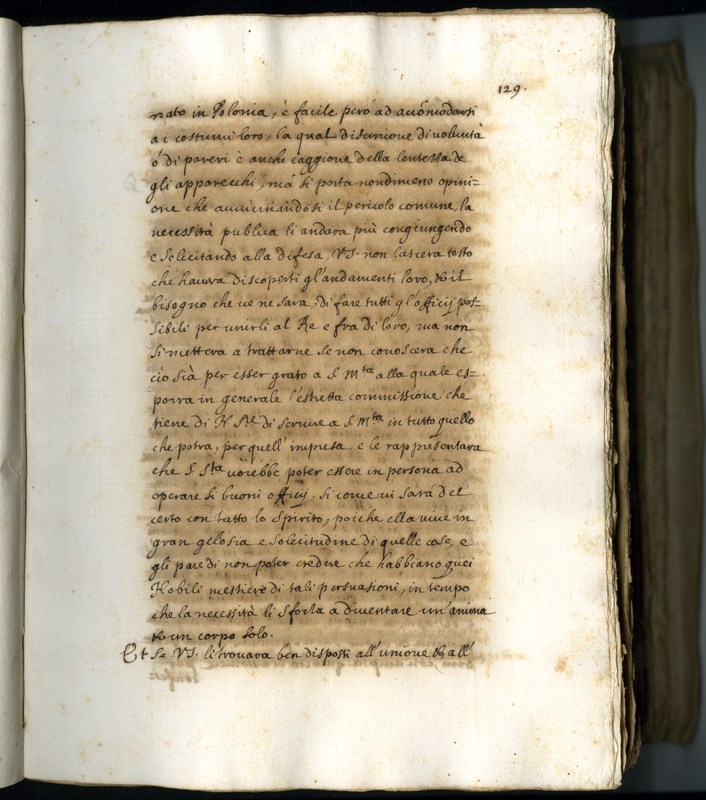 129.
nato in Polonia, è facile però ad accõmodarsi
a i costumi loro, la qual disunione di voluntà
ò di pareri è anchi caggione della lentezza de
gli apparecchi, mà si porta nondimeno opini=
one che avvicinandosi il pericolo comune, la
necessità publica li andara più congiungendo
e solicitando alla difesa, VS. non lasciera tosto
che havvra discoperti gl'andamenti loro, & il
bisogno che ve ne sara, di fare tutti gl'officij pos-
sibili per unirli al Re e fra di loro, ma non
si mettera a trattarne se non conoscera che
ciò sià per esser grato a S. Mta alla quale es=
porra in generale l'estretta commissione che
tiene di N Sre di servire a S. Mta in tutto quello
che potra, per quell' impresa, e le rappresentara
che S. Sta vorebbe poter essere in persona ad
operare si buoni officij, si come vi sarà del
certo con tutto lo spirito, poiche ella vive in
gran gelosia e solecitudine di quelle cose, e
gli pare di non poter credere che habbiano quei
Nobili mestiere di tali persuasioni, in tempo
che la necessità li sforza a diventare un'anima
& un corpo solo.
Et se VS. li trovara ben disposti all'unione & all'